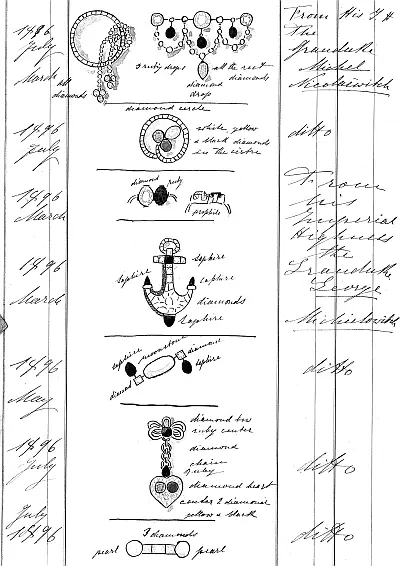 1896
July
March
all
diamonds
3 ruby drops
all the rest
diamonds
diamond
drop
From His I H
The
Granduke
Michel
Nicolaiwitch
diamond circle
1896
July
white, yellow
& black diamonds
in the
ditto
1896
March
diamond
ruby
prophile
From
His
Imperial
Highness
the
Granduke
George
Michielowitch
1896
March
saphire
saphire
saphire
diamonds
Saphire
1896
May
saphire
moonstone
diamond
diamond
saphire
ditto
1896
July
diamond bow
ruby center
diamond
chain
ruby
diamond heart
center 2 diamond
yellow & black
ditto
July
1896
3 diamonds
pearl
pearl
ditto